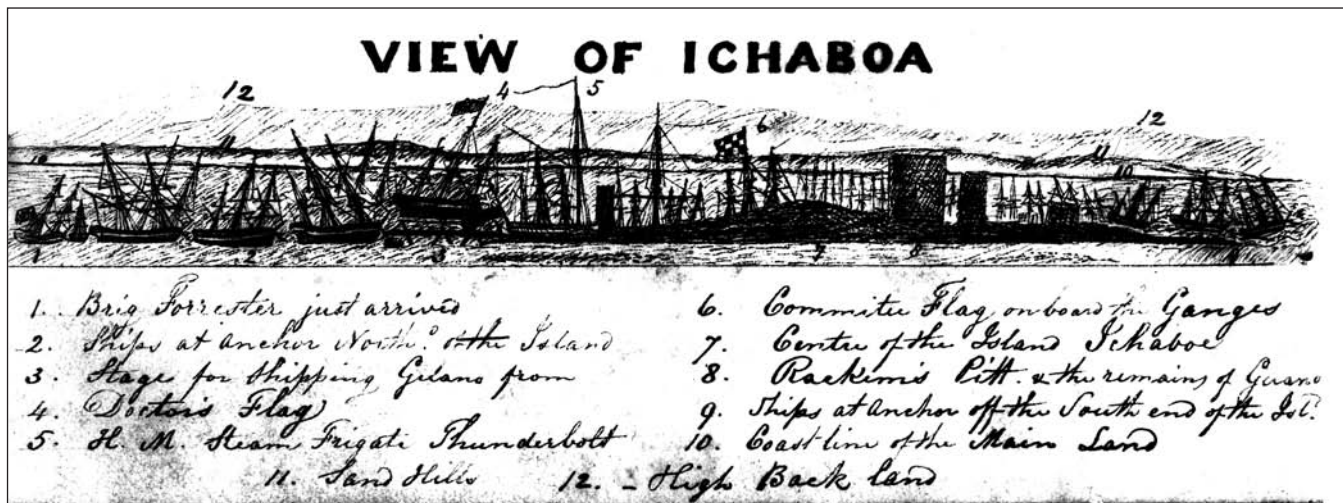 VIEW OF ICHABOA
12 4 5 6 12
10 11 11 10
1 2 3 7 8 9
1. Brig Forrester just arrived
2. Ships at anchor North.º of the Island
3. Stage for Shipping Guano from
4. Doctors Flag
5. H. M. Steam Frigate Thunderbolt
6. Commitee Flag on board the Ganges
7. Centre of the Island Ichaboe
8. Pitt. & the remains of Guano
9. Ships at anchor off the South end of the Isl.d
10. Coast line of the Main Land
11. Sand Hills 12. - High Back land